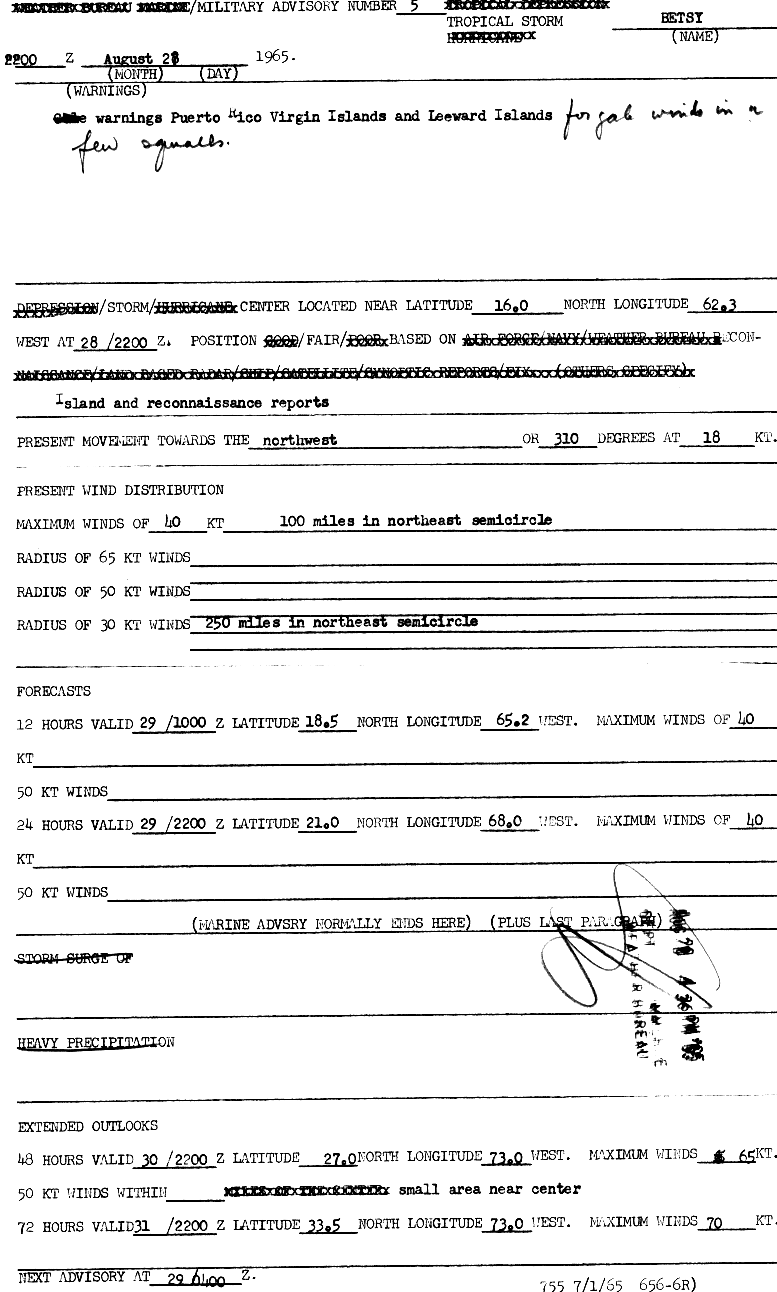 WEATHER BUREAU MARINE/MILITARY ADVISORY NUMBER 5 TROPICAL DEPRESSION
TROPICAL STORM BETSY
HURRICANE (NAME)
2200 Z August 28 1965.
(MONTH) (DAY)
(WARNINGS)
warnings Puerto Rico Virgin Islands and Leeward Islands for gale winds in a
few squalls.
DEPRESSION/STORM/HURRICANE CENTER LOCATED NEAR LATITUDE 16.0 NORTH LONGITUDE 62.3
WEST AT 28 /2200 Z. POSITION GOOD/FAIR/POOR BASED ON AIR FORCE/NAVY/WEATHER BUREAU RECON-
NAISSANCE/LAND BASED RADAR/SHIP/SATELLITE/SYNOPTIC REPORTS/FIX (OTHERS SPECIFY)
Island and reconnaissance reports
PRESENT MOVEMENT TOWARDS THE northwest OR 310 DEGREES AT 18 KT.
PRESENT WIND DISTRIBUTION
MAXIMUM WINDS OF 40 KT 100 miles in northeast semicircle
RADIUS OF 65 KT WINDS
RADIUS OF 50 KT WINDS
RADIUS OF 30 KT WINDS 250 miles in northeast semicircle
FORECASTS
12 HOURS VALID 29 /1000 Z LATITUDE 18.5 NORTH LONGITUDE 65.2 WEST. MAXIMUM WINDS OF 40
KT
50 KT WINDS
24 HOURS VALID 29 /2200 Z LATITUDE 21.0 NORTH LONGITUDE 68.0 WEST. MAXIMUM WINDS OF 40
KT
50 KT WINDS
(MARINE ADVSRY NORMALLY ENDS HERE) (PLUS LAST PARAGRAPH)
STORM SURGE OF
WEATHER BUREAU
HEAVY PRECIPITATION
EXTENDED OUTLOOKS
48 HOURS VALID 30 /2200 Z LATITUDE 27.0 NORTH LONGITUDE 73.0 WEST. MAXIMUM WINDS 65 KT.
50 KT WINDS WITHIN MILES OF THE CENTER small area near center
72 HOURS VALID 31 /2200 Z LATITUDE 33.5 NORTH LONGITUDE 73.0 WEST. MAXIMUM WINDS 70 KT.
NEXT ADVISORY AT 29 0400 Z.
755 7/1/65 656-6R)